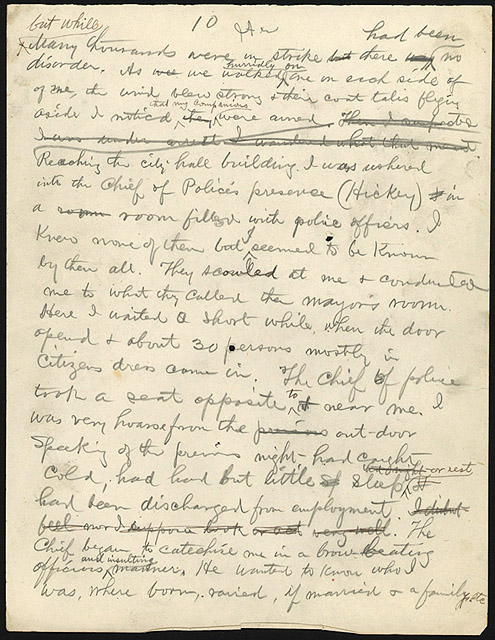 but while 10 had been
Many thousands were in strike but there was no
disorder. As we we walked hurriedly on one on each side of
of me, the wind blew strong & their coat tails flying
aside I noticed that my companions they were armed. Then I
I was under arrest I wondered what that meant
Reaching the city hall building. I was ushered
into the Chief of Police's presence (Hickey) in
a room room filled with police officers. I
knew none of them but I seemed to be known
by them all. They scowled at me & conducted
me to what they called the mayor's room.
Here I waited a short while, when the door
opend & about 30 persons mostly in
Citizens dress came in. The Chief of police
took a seat opposite to & near me. I
was very hoarse from the previous out-door
Speaking of the previous night - had caught
cold, had had but little sleep or rest &
had been discharged from employment. I didnt
feel nor I suppose look or act very well. The
Chief began to catechise me in a brow beating
officious and insulting manner. He wanted to know who I
was, where born, raised, if married & a family, etc